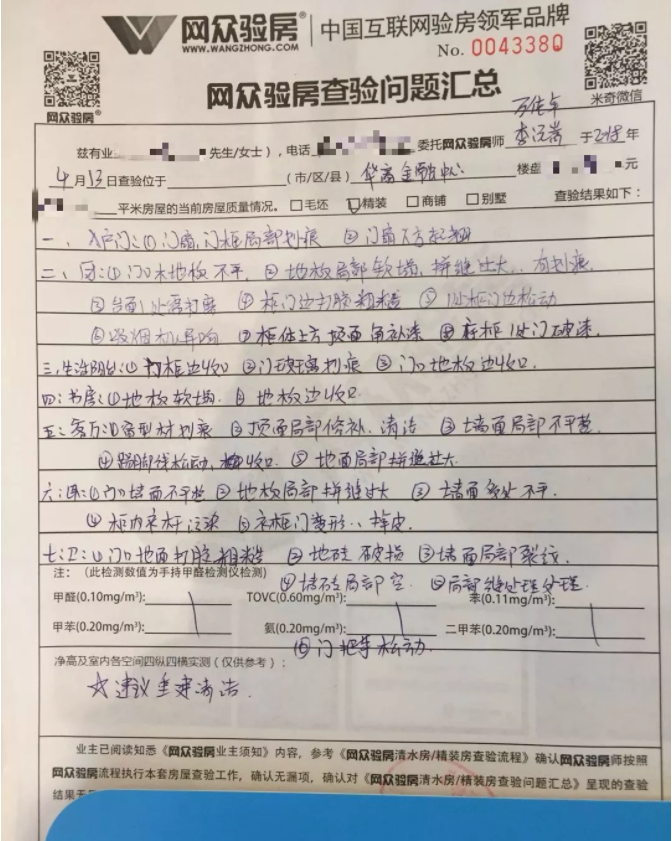 网众验房® 中国互联网验房领军品牌
WWW.WANGZHONG.COM
No. 0043380
网众验房®
网众验房查验问题汇总
米奇微信
兹有业 先生/女士），电话 委托网众验房师 于 年
4月13日查验位于 （市/区/县） 华商金融中心 楼盘 元
平米房屋的当前房屋质量情况。 □毛坯 精装 □商铺 □别墅 查验结果如下：
一、入户门：① 门扇，门框局部划痕 ② 门扇下方起翘
二、 ：① 门口木地板不平 ② 地板局部软塌，拼缝过大，有划痕
③ 台面1处需打磨 ④ 柜门边打胶粗糙 ⑤ 1处柜门边松动
⑥ 吸烟机异响 ⑦ 柜体上方顶面 补漆 ⑧ 1处门破漆
三、生活阳台：① 门柜边收口 ② 门玻璃划痕 ③ 门口地板边收口
四：书房：① 地板软塌 ② 地板边收口
五：客厅：① 窗型材划痕 ② 顶面局部修补、清洁 ③ 墙面局部不平整
④ 踢脚线松动， 收口 ⑤ 地面局部拼缝过大
六：卧：① 门口墙面不平整 ② 地板局部拼缝过大 ③ 墙面多处不平
④ 柜内衣杆污染 ⑤ 衣柜门变形、掉皮
七：卫：① 门口地面打胶粗糙 ② 地砖破损 ③ 墙面局部裂纹
注：（此检测数值为手持甲醛检测仪检测） ④ 墙砖局部空 ⑤ 局部缝处理
甲醛(0.10mg/m³): TOVC(0.60mg/m³): 苯(0.11mg/m³):
甲苯(0.20mg/m³): 氨(0.20mg/m³): 二甲苯(0.20mg/m³):
⑥ 门把手松动
净高及室内各空间四纵四横实测（仅供参考）：
☆建议重建清洁
业主已阅读知悉《网众验房业主须知》内容，参考《网众验房清水房/精装房查验流程》确认网众验房师按照
网众验房流程执行本套房屋查验工作，确认无漏项，确认对《网众验房清水房/精装房查验问题汇总》呈现的查验
结果